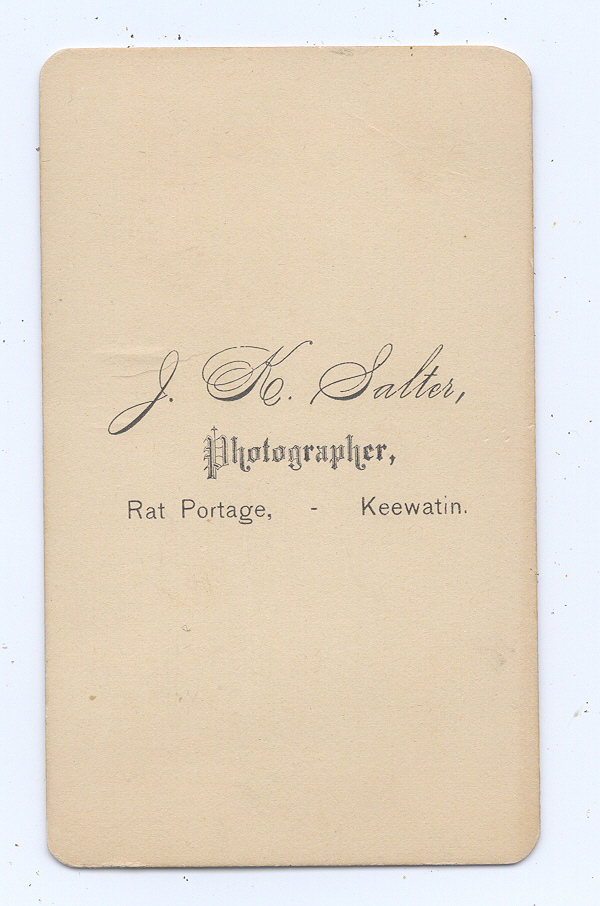 J. K. Salter,
Photographer,
Rat Portage, - Keewatin.